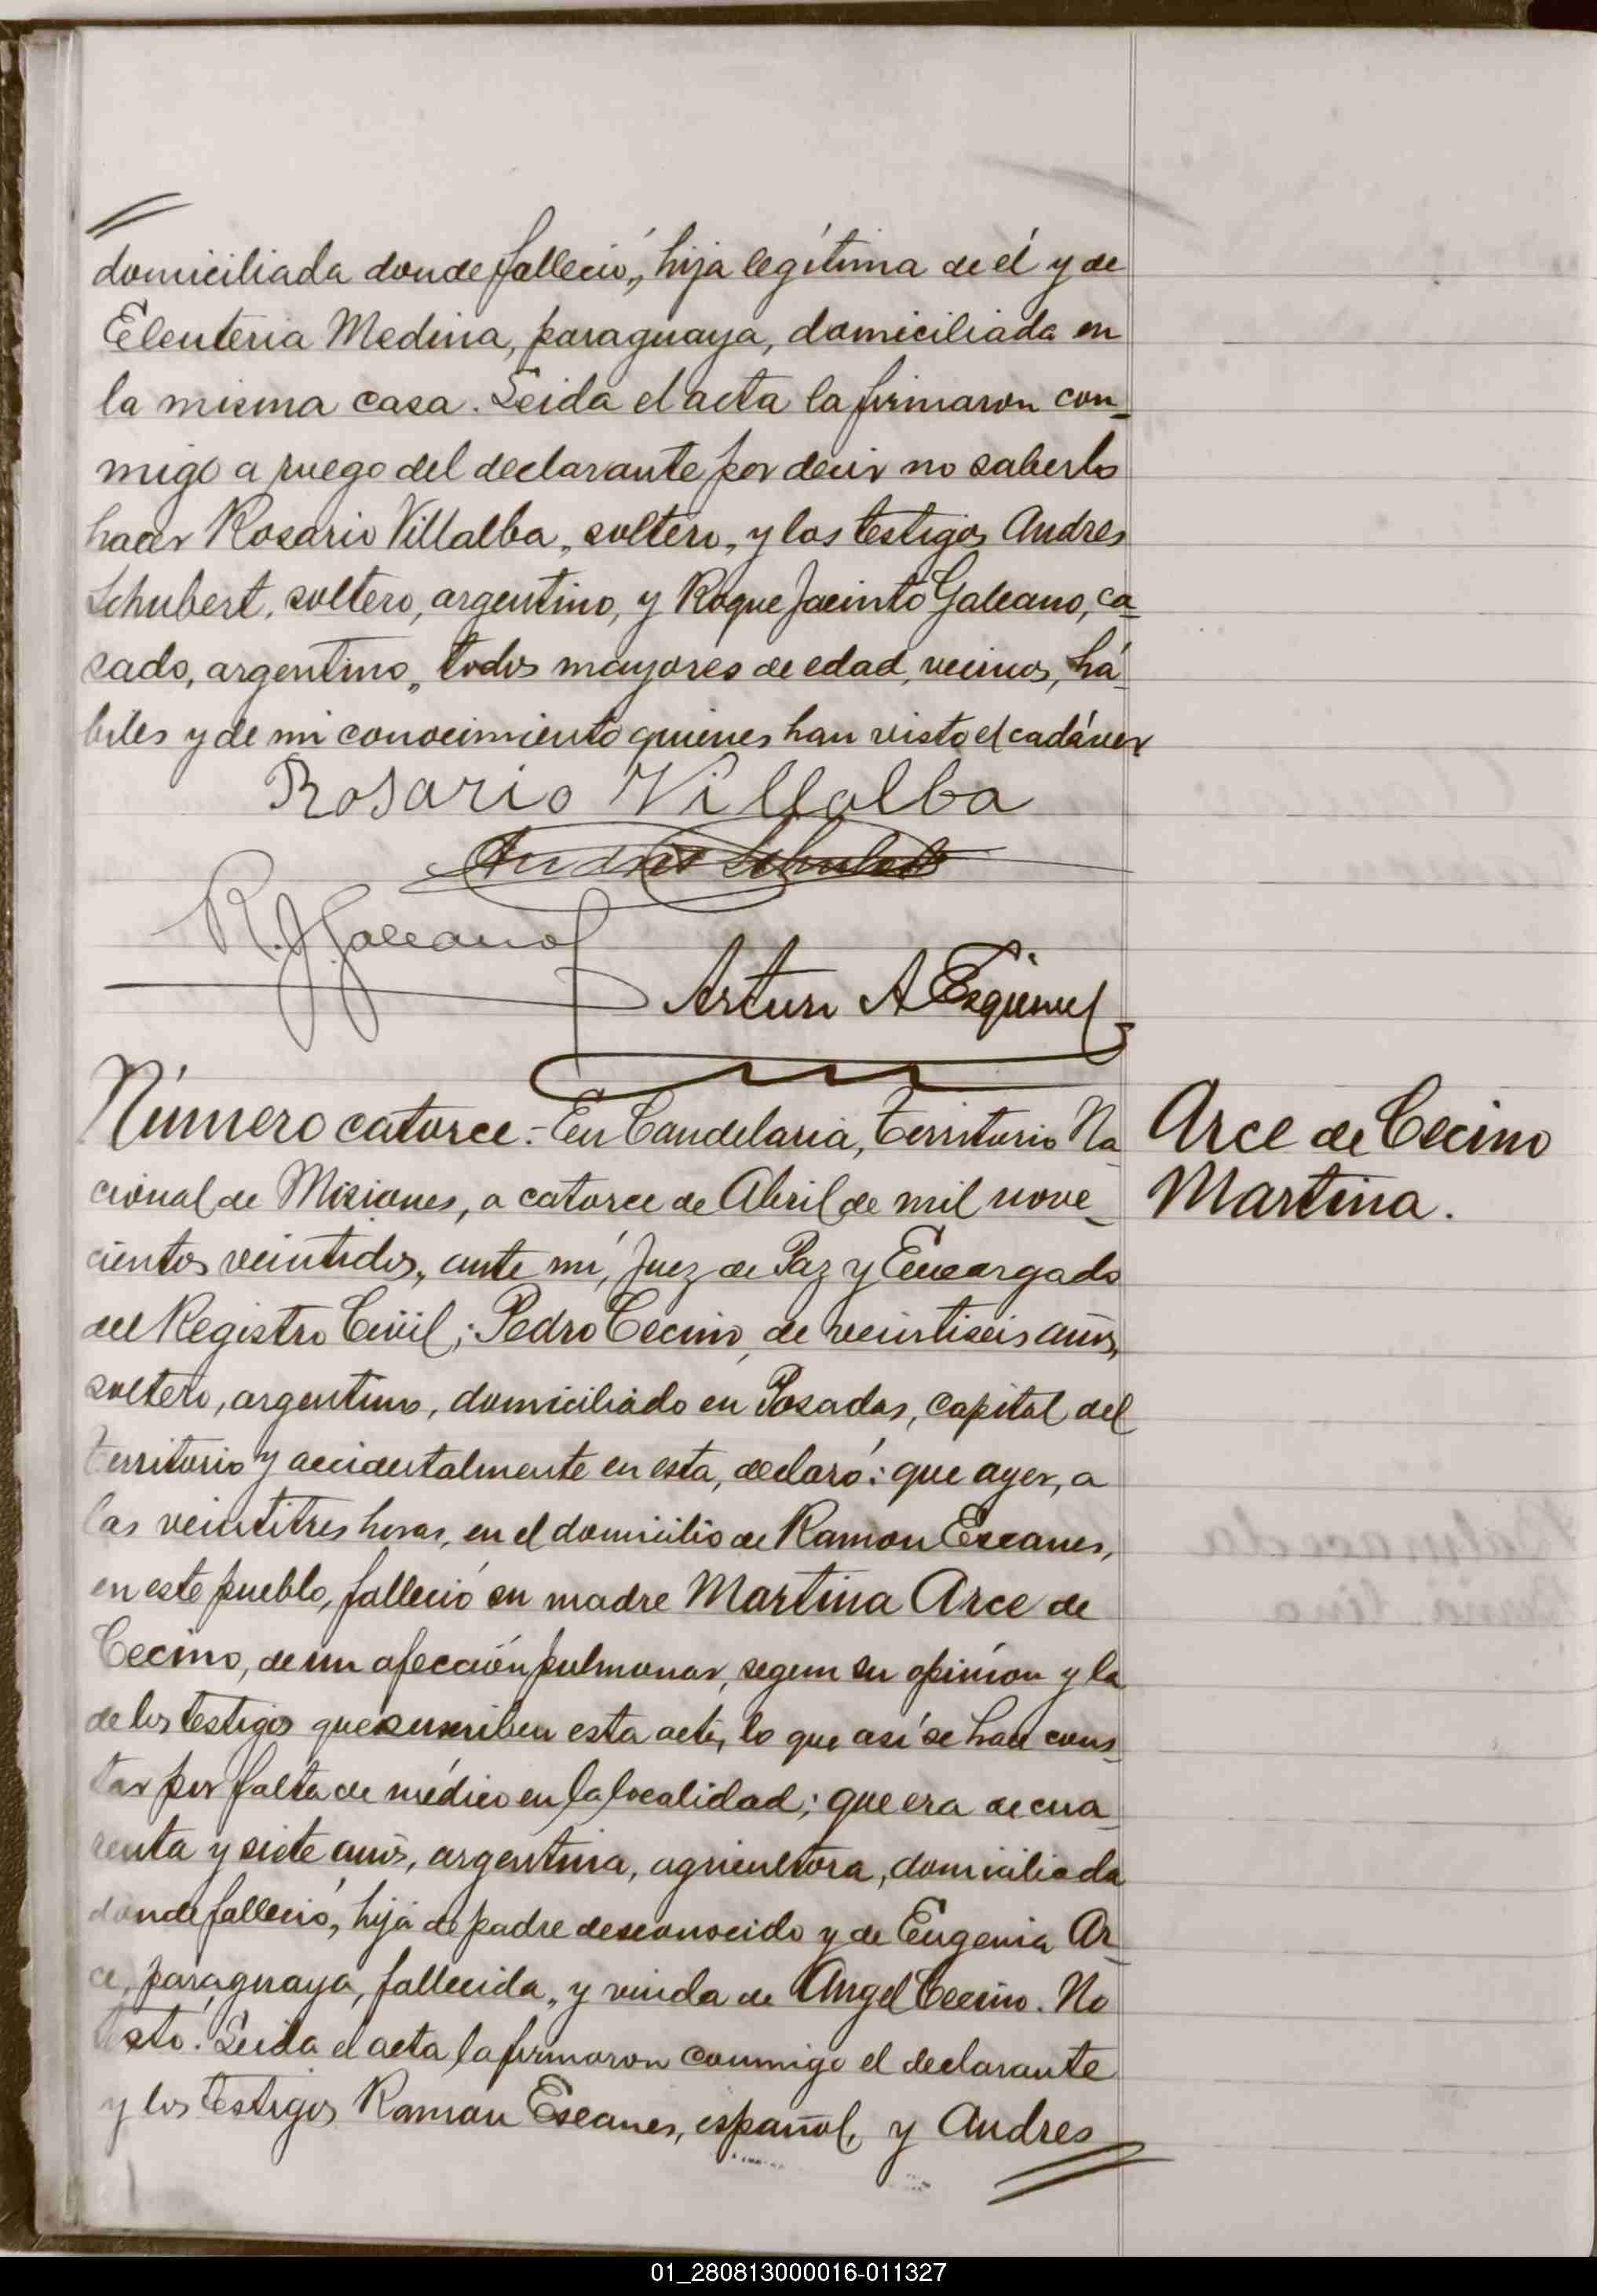 domiciliada donde falleció, hija legítima de él y de
Eleuteria Medina, paraguaya, domiciliada en
la misma casa. Leida el acta la firmaron con-
migo a ruego del declarante por decir no saberlo
hacer Rosario Villalba, soltero, y los testigos Andres
Schubert, soltero, argentino, y Roque Jacinto Galeano, ca-
sado, argentino, todos mayores de edad, vecinos, há-
biles y de mi conocimiento quienes han visto el cadáver
Rosario Villalba
Andres Schubert
R. J. Galeano
Arturo A
Número catorce.- En Candelaria, Territorio Na-
cional de Misiones, a catorce de Abril de mil nove-
cientos veintidos, ante mí, Juez de Paz y Encargado
del Registro Civil; Pedro Cecino, de veintiseis años,
soltero, argentino, domiciliado en Posadas, capital del
territorio y accidentalmente en esta, declaró: que ayer, a
las veintitres horas, en el domicilio de Ramon Eseanes,
en este pueblo, falleció su madre Martina Arce de
Cecino, de un afección pulmonar, segun su opinion y la
de los testigos que suscriben esta acta, lo que así se hace cons-
tar por falta de médico en la localidad; que era de cua-
renta y siete años, argentina, agricultora, domiciliada
donde falleció, hija de padre desconocido y de Eugenia Ar-
ce, paraguaya, fallecida, y viuda de Angel Cecino. No
testó. Leida el acta la firmaron conmigo el declarante
y los testigos Ramon Eseanes, español, y Andres
Arce de Cecino
Martina.
01_280813000016-011327